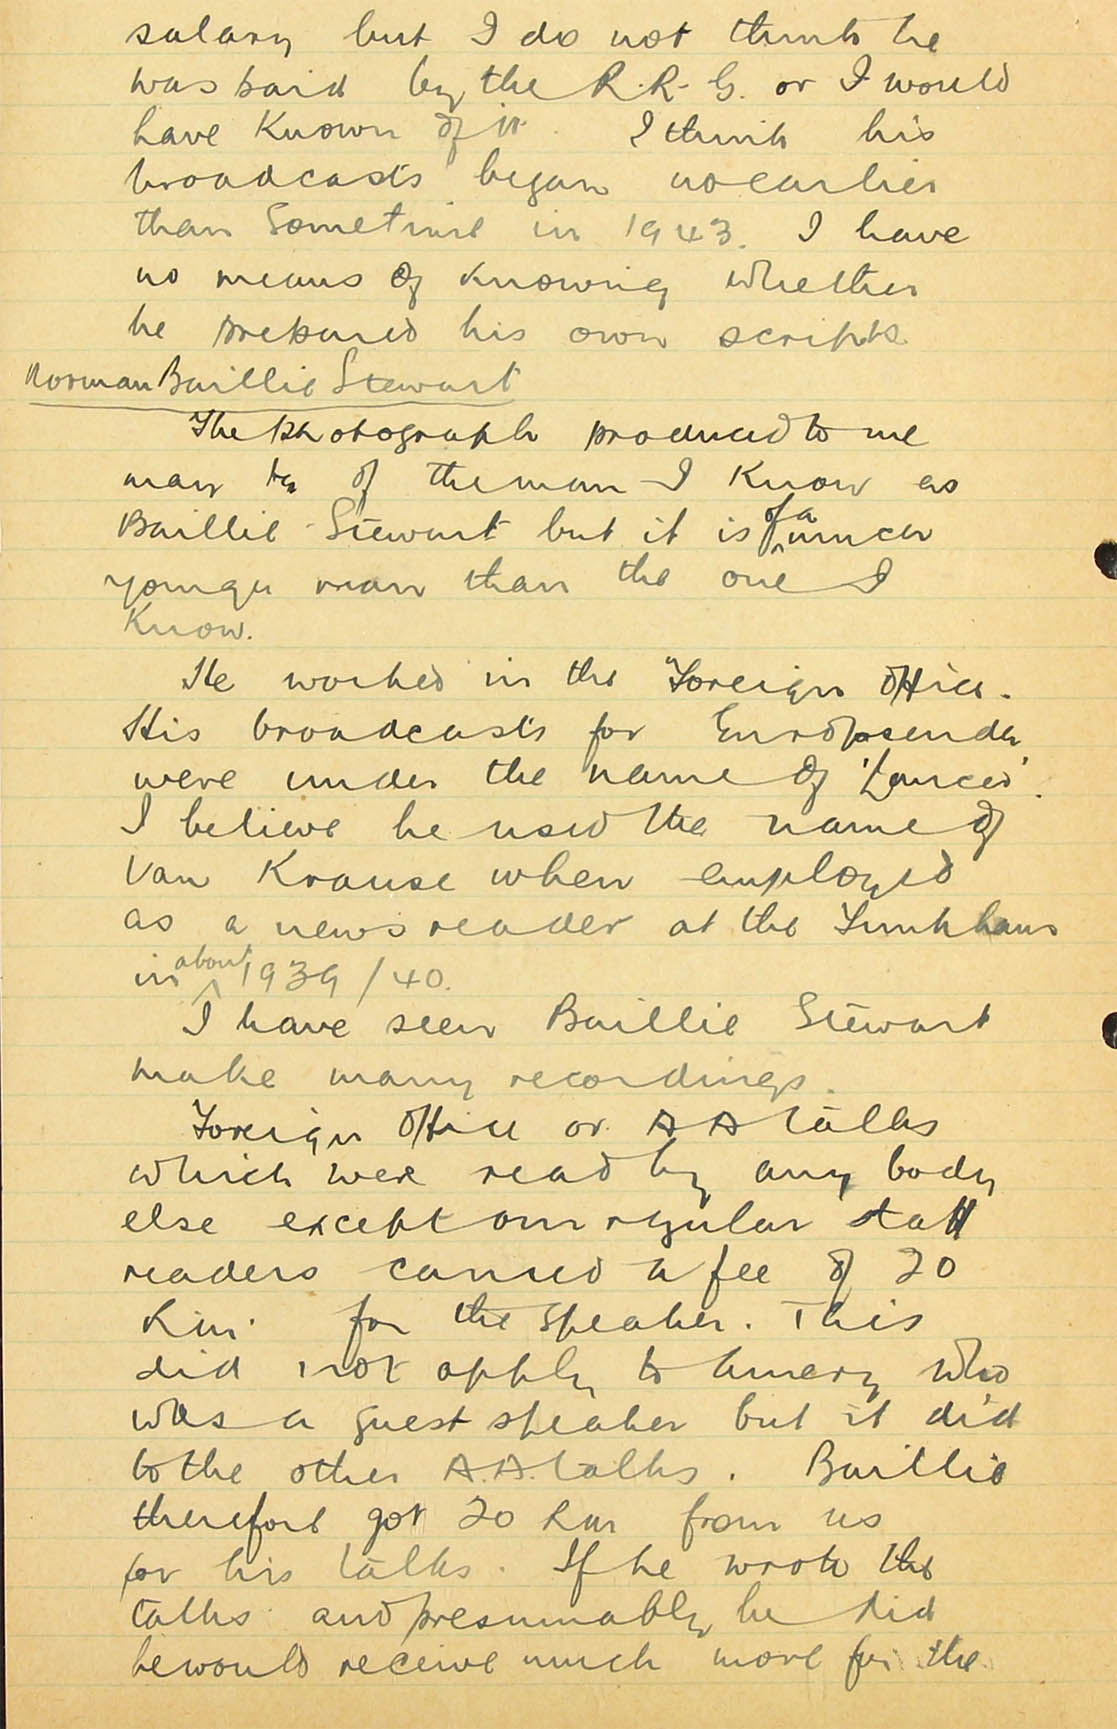 salary but I do not think he
was paid by the R.R.G. or I would
have known of it. I think his
broadcasts began no earlier
than sometime in 1943. I have
no means of knowing whether
he prepared his own scripts
Norman Baillie Stewart
The photograph produced to me
may be of the man I know as
Baillie-Stewart but it is of a much
younger man than the one I
know.
He worked in the Foreign Office.
His broadcasts for Europsender
were under the name of 'Lancer'.
I believe he used the name of
Van Krause when employed
as a news reader at the Funkhaus
in about 1939/40.
I have seen Baillie Stewart
make many recordings.
Foreign Office or AA talks
which were read by any body
else except our regular staff
readers carried a fee of 20
Rm. for the speaker. This
did not apply to Amery who
was a guest speaker but it did
to the other A.A. talks. Baillie
therefore got 20 Rm from us
for his talks. If he wrote the
talks and presumably he did
he would receive much more for the